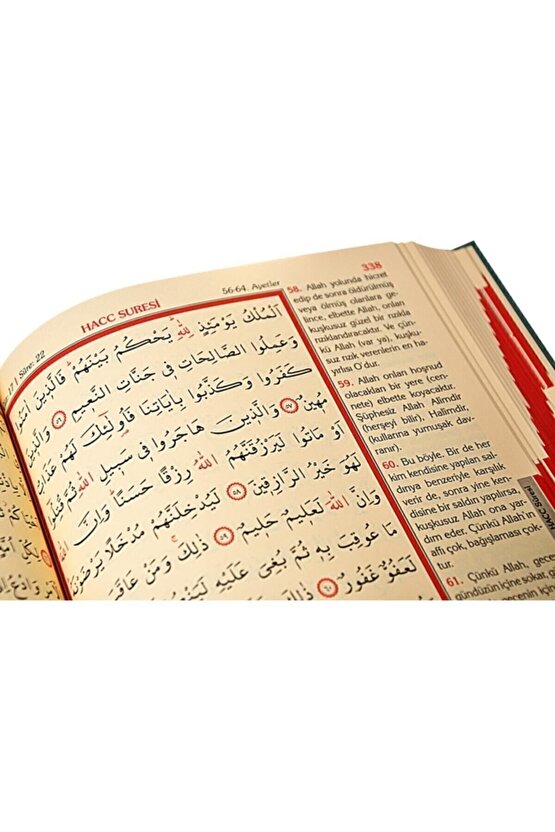 HACC SURESİ
56-64. Ayetler
338
Sûre: 22
اَلْمُلْكُ يَوْمَئِذٍ لِلّٰهِ يَحْكُمُ بَيْنَهُمْ فَالَّذِينَ اٰمَنُوا
وَعَمِلُوا الصَّالِحَاتِ فِى جَنَّاتِ النَّعِيمِ ٥٦ وَالَّذِينَ
كَفَرُوا وَكَذَّبُوا بِاٰيَاتِنَا فَاُولٰئِكَ لَهُمْ عَذَابٌ
مُهِينٌ ٥٧ وَالَّذِينَ هَاجَرُوا فِى سَبِيلِ اللّٰهِ ثُمَّ قُتِلُوا
اَوْ مَاتُوا لَيَرْزُقَنَّهُمُ اللّٰهُ رِزْقًا حَسَنًا وَاِنَّ اللّٰهَ
لَهُوَ خَيْرُ الرَّازِقِينَ ٥٨ لَيُدْخِلَنَّهُمْ مُدْخَلًا يَرْضَوْنَهُ
وَاِنَّ اللّٰهَ لَعَلِيمٌ حَلِيمٌ ٥٩ ذٰلِكَ وَمَنْ عَاقَبَ
مَا عُوقِبَ بِهِ ثُمَّ بُغِىَ عَلَيْهِ
لَعَفُوٌّ غَفُورٌ ٦٠ ذٰلِكَ
58. Allah yolunda hicret
edip de sonra öldürülmüş
veya ölmüş olanlara ge-
lince, elbette Allah, onları
kuşkusuz güzel bir rızık
rızıklandıracaktır. Ve çün-
kü Allah (var ya), kuşku-
suz rızık verenlerin en ha-
yırlısı O'dur.
59. Allah onları hoşnud
olacakları bir yere (cen-
nete) elbette koyacaktır.
Şüphesiz Allah Alîmdir
(herşeyi bilir), Halîmdir,
(kullarına yumuşak dav-
ranır).
60. Bu böyle. Bir de her
kim kendisine yapılan sal-
dırıya benzeriyle karşılık
verir de, sonra yine ken-
disine bir saldırı yapılırsa,
kuşkusuz Allah ona yar-
dım eder. Çünkü Allah'ın
affı çok, bağışlaması çok-
tur.
61. Çünkü Allah, geceyi
gündüzün içine sokar, gü